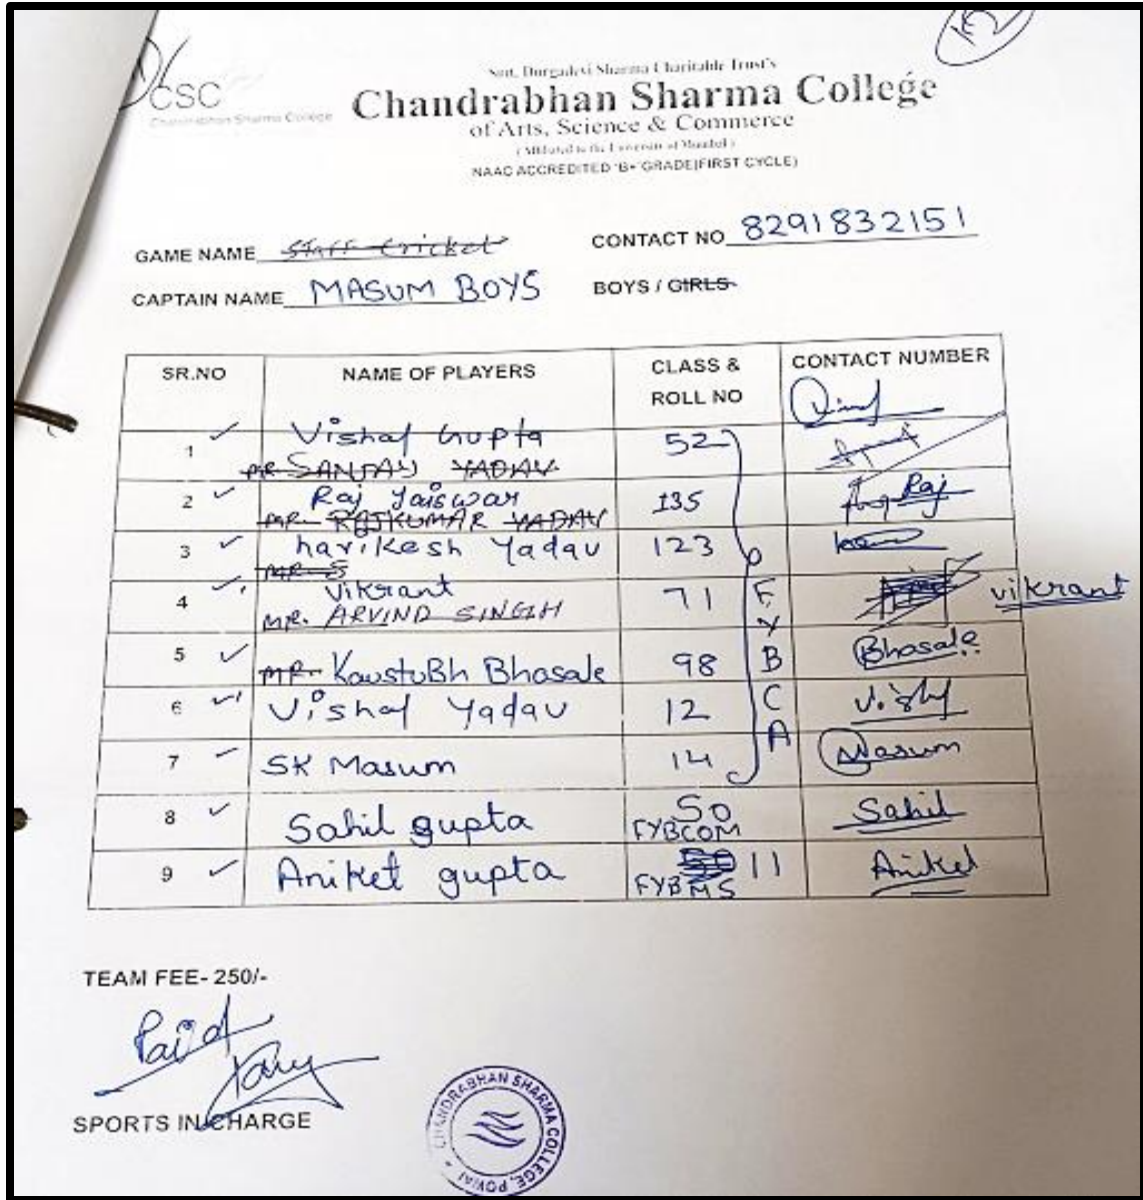 CSC
Chandrabhan Sharma College
Smt. Durgadevi Sharma Charitable Trust's
Chandrabhan Sharma College
of Arts, Science & Commerce
(Affiliated to the University of Mumbai)
NAAC ACCREDITED 'B+' GRADE(FIRST CYCLE)
GAME NAME Staff Cricket CONTACT NO 8291832151
CAPTAIN NAME MASUM BOYS BOYS / GIRLS
SR.NO NAME OF PLAYERS CLASS & ROLL NO CONTACT NUMBER
1 Vishal Gupta 52
MR. SANJAY YADAV
2 Raj Jaiswar 135 Raj
MR. RAJKUMAR YADAV
3 harikesh Yadav 123
MR. S
4 Vikrant 71 vikrant
MR. ARVIND SINGH
5 MR. KaustuBh Bhosale 98 Bhosale
6 Vishal Yadav 12 Vishal
7 SK Masum 14 Masum
FYBCA
8 Sahil gupta 50 FYBCOM Sahil
9 Aniket gupta 11 FYBMS Aniket
TEAM FEE- 250/-
Paid
SPORTS IN CHARGE
CHANDRABHAN SHARMA COLLEGE, POWAI